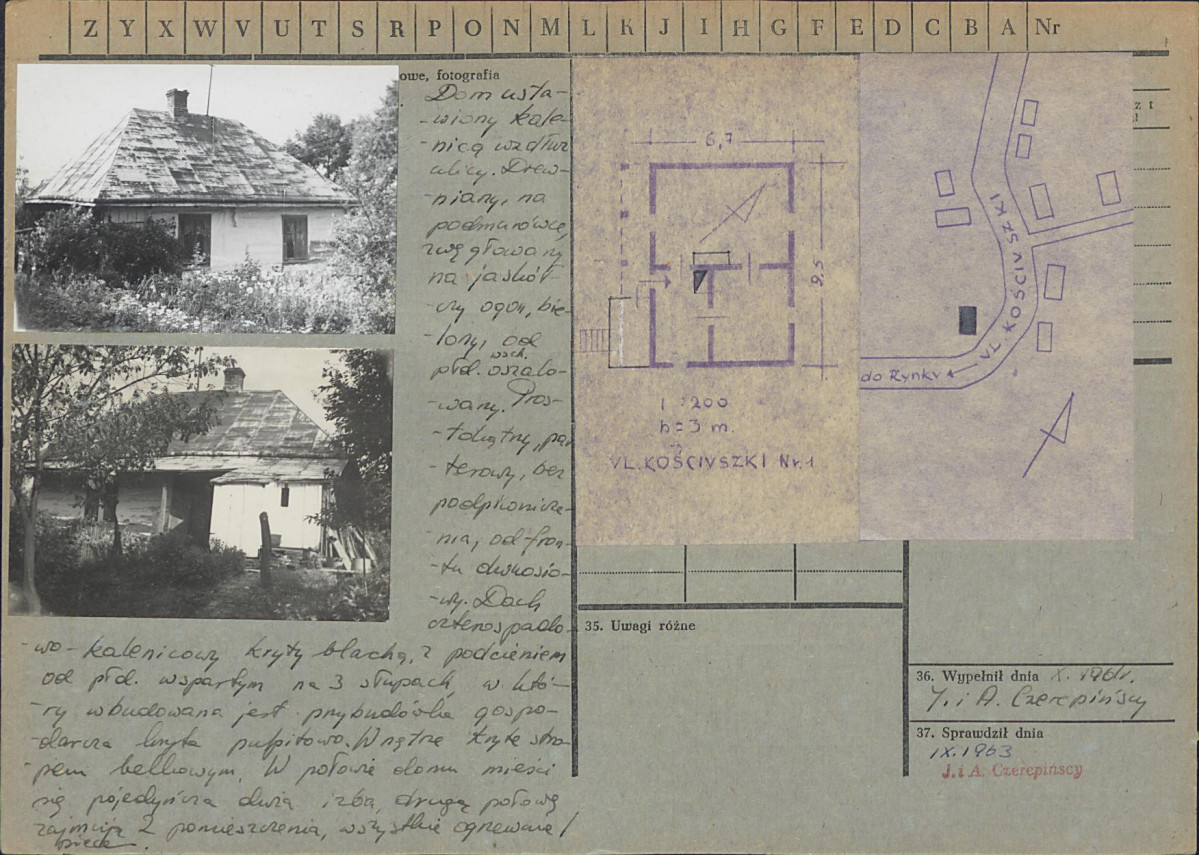 Z Y X W V U T S R P O N M L K J I H G F E D C B A Nr
owe, fotografia
Dom usta-
-wiony kale-
-nicą wzdłuż
ulicy. Drew-
-niany, na
podmurówce,
zwęgłowany
na jaskół-
-czy ogon, bie-
lony, od
wsch.
płd. oszalo-
-wany. Pros-
-tokątny, par
-terowy, bez
podpiwnicze-
-nia, od fron-
-tu dwuosio-
-wy. Dach
czterospado-
-wo-kalenicowy kryty blachą, z podcieniem
od płd. wspartym na 3 słupach, w któ-
-ry wbudowana jest przybudówka gospo-
-darcza kryta pulpitowo. Wnętrze kryte stro-
-pem belkowym. W połowie domu mieści
się pojedyńcza duża izba, drugą połowę
zajmują 2 pomieszczenia, wszystkie ogrzewane /
piece.
6,7
9,5
1 : 200
h = 3 m.
UL. KOŚCIUSZKI Nr. 1
UL. KOŚCIUSZKI
do Rynku
35. Uwagi różne
36. Wypełnił dnia X. 1961r.
J. i A. Czerepińscy
37. Sprawdził dnia
IX. 1963
J. i A. Czerepińscy